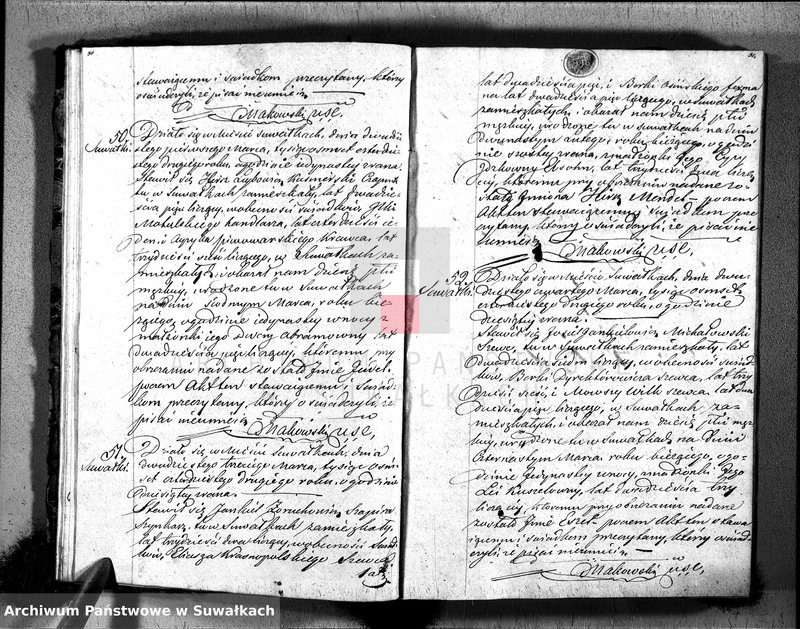 stawaiącemu i świadkom przeczytany, który
oświadczyli, że pisać nieumieią
Makowski USC.
50.
Suwałki.
Działo się w Mieście Suwałkach, dnia dwudzie
stego pierwszego Marca, tysiąc ośmset czterdzie
stego drugiego roku, o godzinie iedynastey zrana.
Stawił się
tu w Suwałkach zamieszkały, lat dwadzie
ścia pięć liczący, w obecności świadków
Motulskiego handlarza, lat czterdzieści ie
den, i piwowarskiego Krawca, lat
trzydzieści liczącego, w Suwałkach za
mieszkałych, i okazał nam dziecię płci
męzkiey, urodzone tu w Suwałkach
na dniu siódmym Marca, roku bie
żącego, o godzinie iedynastey w nocy z
małżonki iego Abramowny, lat
dwadzieścia liczącey, któremu przy
obrzezaniu nadane zostało Imie
poczem Akt ten stawaiącemu i świad
kom przeczytany, którzy oświadczyli, że
pisać nieumieią
Makowski USC,
51.
Suwałki.
Działo się w Mieście Suwałkach, dnia
dwudziestego trzeciego Marca, tysiąc ośm
set czterdziestego drugiego roku, o godzinie
dziesiątey zrana.
Stawił się Jankiel Zoruchowicz Szapira
Szynkarz, tu w Suwałkach zamieszkały,
lat trzydzieści dwa liczący, w obecności świad
ków, Eliasza Krasnopolskiego Szewca
lat
lat dwadzieścia pięć, i Berki
na lat dwadzieścia pięć liczącego, w Suwałkach
zamieszkałych, i okazał nam dziecię płci
męzkiey, urodzone tu w Suwałkach na dniu
Dwunastym Marca, roku bieżącego, o godzi
nie zrana, z małżonki iego Cypy
lat trzydzieści dwa liczą
cey, któremu przy obrzezaniu nadane zo
stały Imiona Hersz Mendel poczem
Akt ten stawaiącemu i świadkom prze
czytany, którzy oświadczyli, że pisać nie
umieią
Makowski USC,
52.
Suwałki.
Działo się w Mieście Suwałkach, dnia dwu
dziestego czwartego Marca, tysiąc ośmset
czterdziestego drugiego roku, o godzinie
dziesiątey zrana.
Stawił się Josiel Jankielowicz Michałowski
Szewc, tu w Suwałkach zamieszkały, lat
dwadzieścia ośm liczący, w obecności świad
ków, Berki Dyrektorowicza Szewca, lat trzy
dzieści sześć, i Mowszy Wilk Szewca lat dwa
dzieścia pięć liczącego, w Suwałkach za
mieszkałych, i okazał nam dziecię płci mę
zkiey, urodzone tu w Suwałkach na Dniu
Czternastym Marca roku bieżącego, o go
dzinie Jedynastey w nocy, z małżonki Jego
Lei lat dwadzieścia trzy
liczącey, któremu przy obrzezaniu nadane
zostało Imie poczem Akt ten stawa
iącemu i świadkom przeczytany, którzy oświad
czyli, że pisać nieumieią
Makowski USC,
PAŃ
AŁK
Archiwum Państwowe w Suwałkach